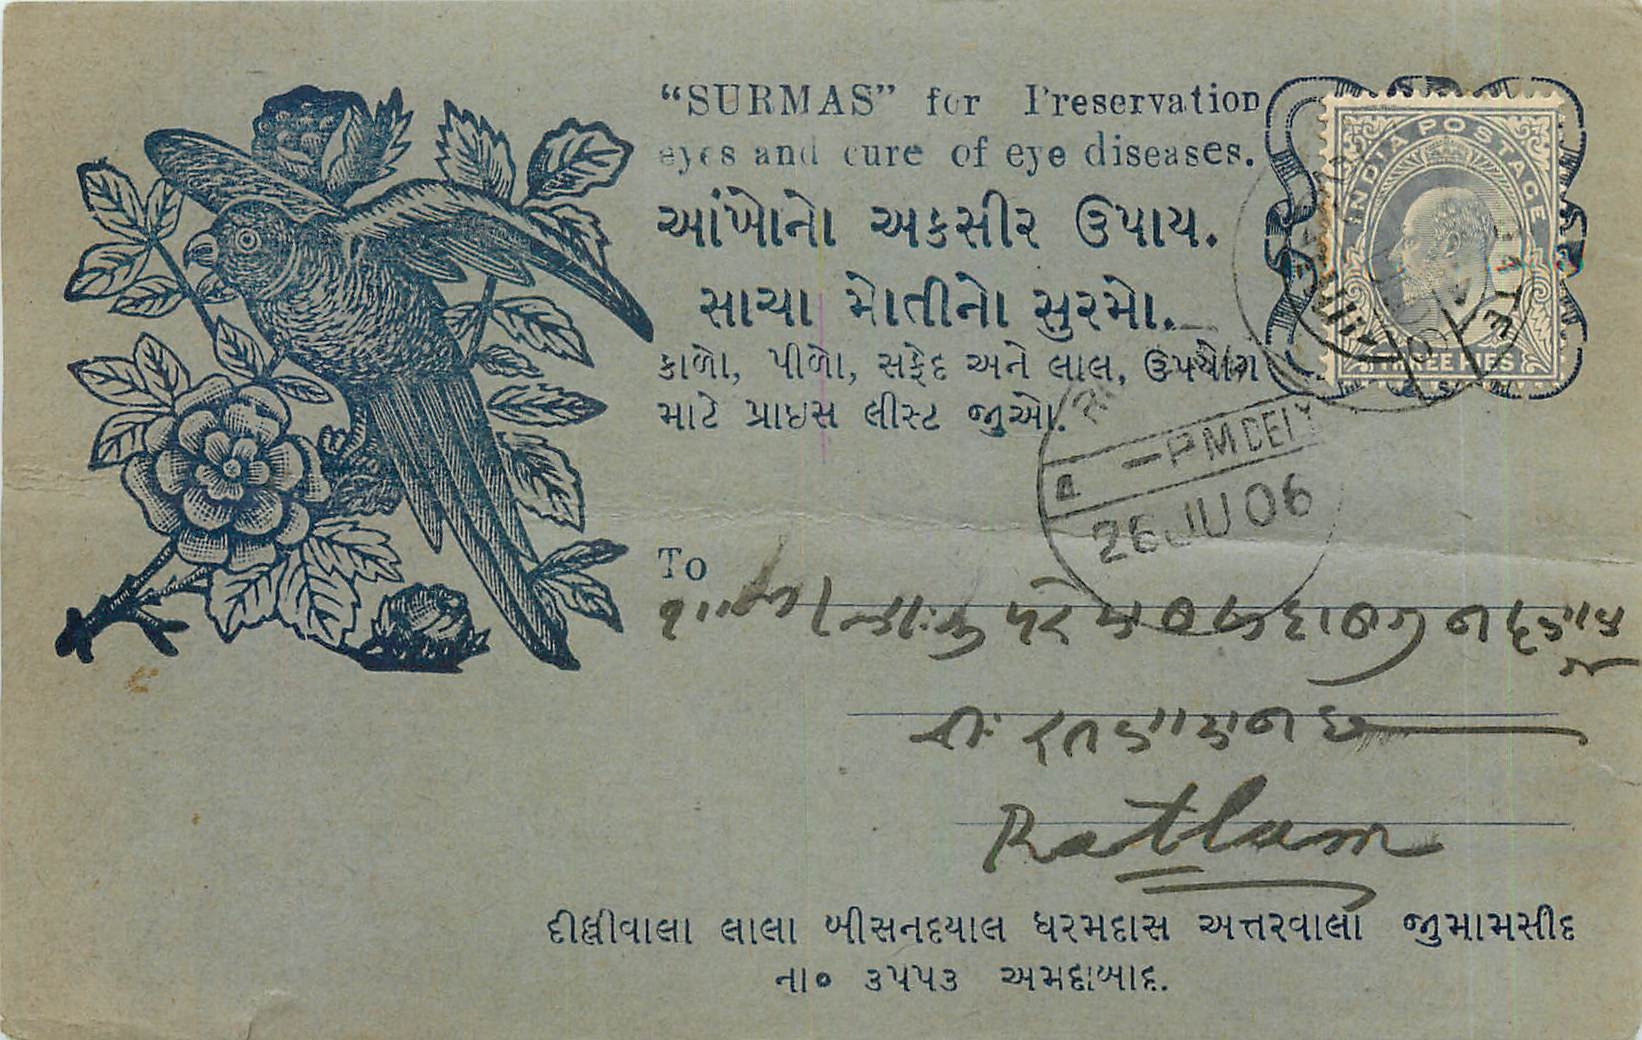 “SURMAS” for Preservation
eyes and cure of eye diseases.
આંખોનો અકસીર ઉપાય.
સાચા મોતીનો સુરમો.
કાળો, પીળો, સફેદ અને લાલ, ઉપયોગ
માટે પ્રાઇસ લીસ્ટ જુઓ.
INDIA POSTAGE
THREE PIES
PM DELY
26 JU 06
To
Ratlam
દીલ્લીવાલા લાલા બીસનદયાલ ધરમદાસ અત્તરવાલા જુમામસીદ
ના૦ ૩૫૫૩ અમદાબાદ.